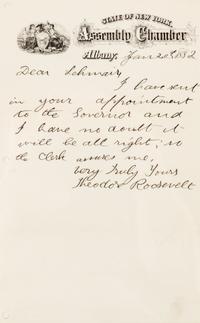 STATE OF NEW YORK.
Assembly Chamber
Albany, Jan 20th 1882
Dear
I have sent
in your appointment
to the Governor and
I have no doubt it
will be all right, so
the Clerk assures me,
Very Truly Yours
Theodore Roosevelt